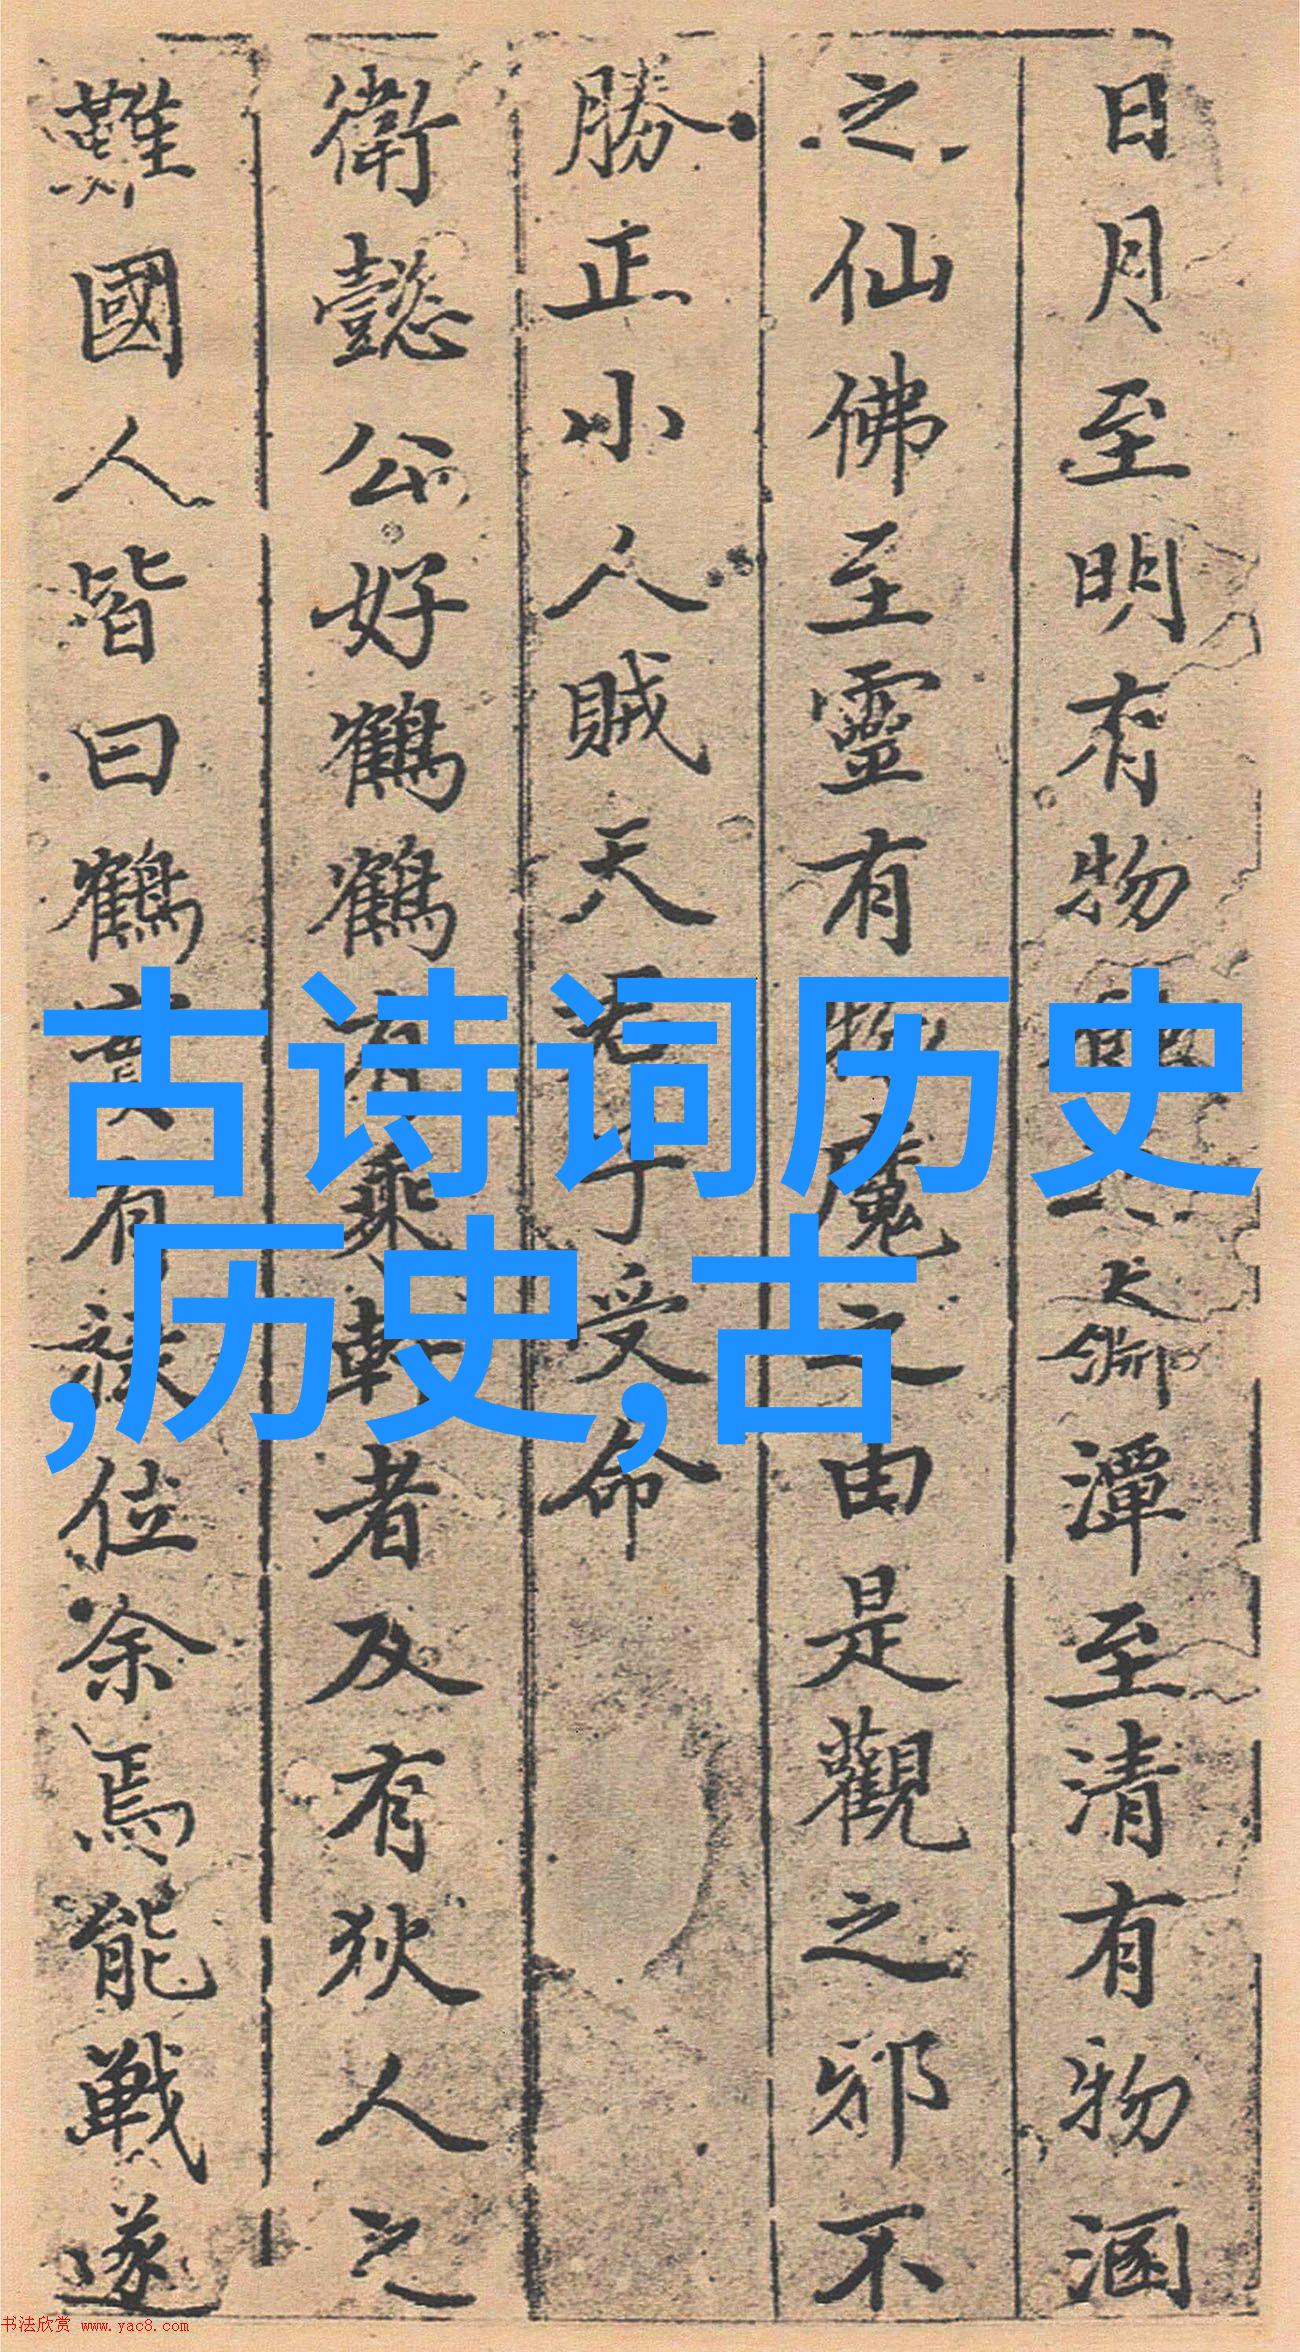 日月至明有物之深潭至清有物涵
之仙佛至靈有物魔之由是觀之邪不
勝正小人賊天君子受命
衛懿公好鶴鶴有乘軒者及有狄人之
難國人皆曰鶴實有祿位余焉能戰遂
古诗词历史
,历史,古
书法欣赏 www.yac8.com